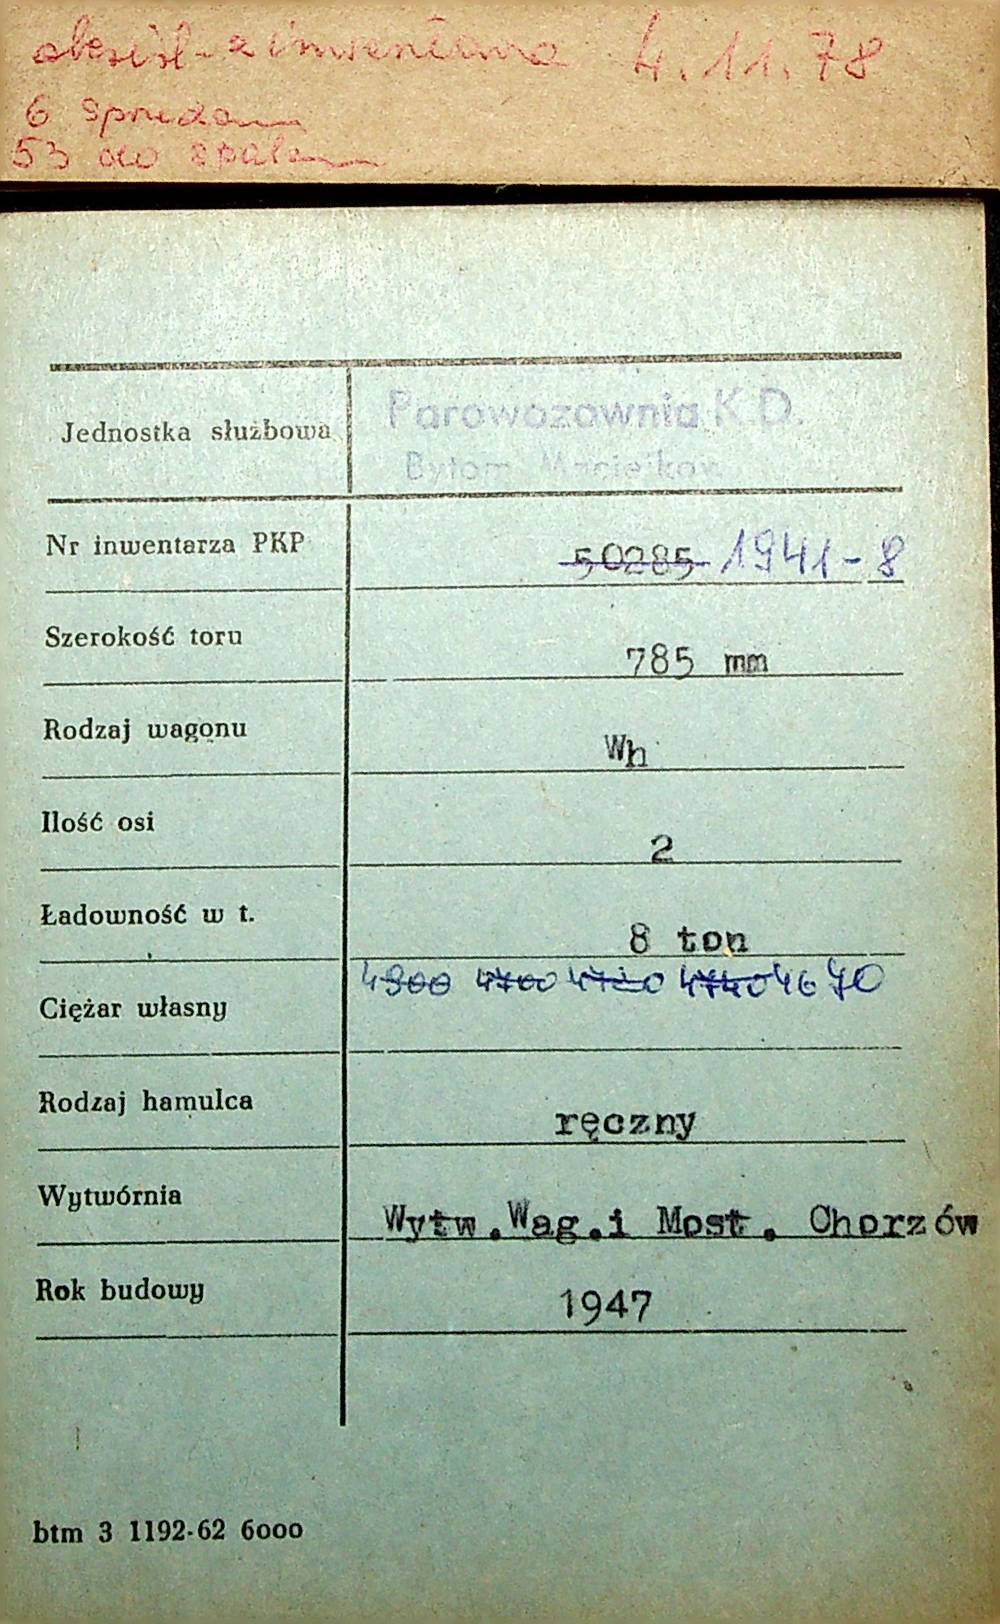 4.11.78
6
53 do
Jednostka służbowa Parowozownia K.D.
Bytom
Nr inwentarza PKP 50285 1941-8
Szerokość toru 785 mm
Rodzaj wagonu Wh
Ilość osi 2
Ładowność w t. 8 ton
Ciężar własny 4900 4700 4670
Rodzaj hamulca ręczny
Wytwórnia Wytw.Wag.i Most. Chorzów
Rok budowy 1947
btm 3 1192-62 6000